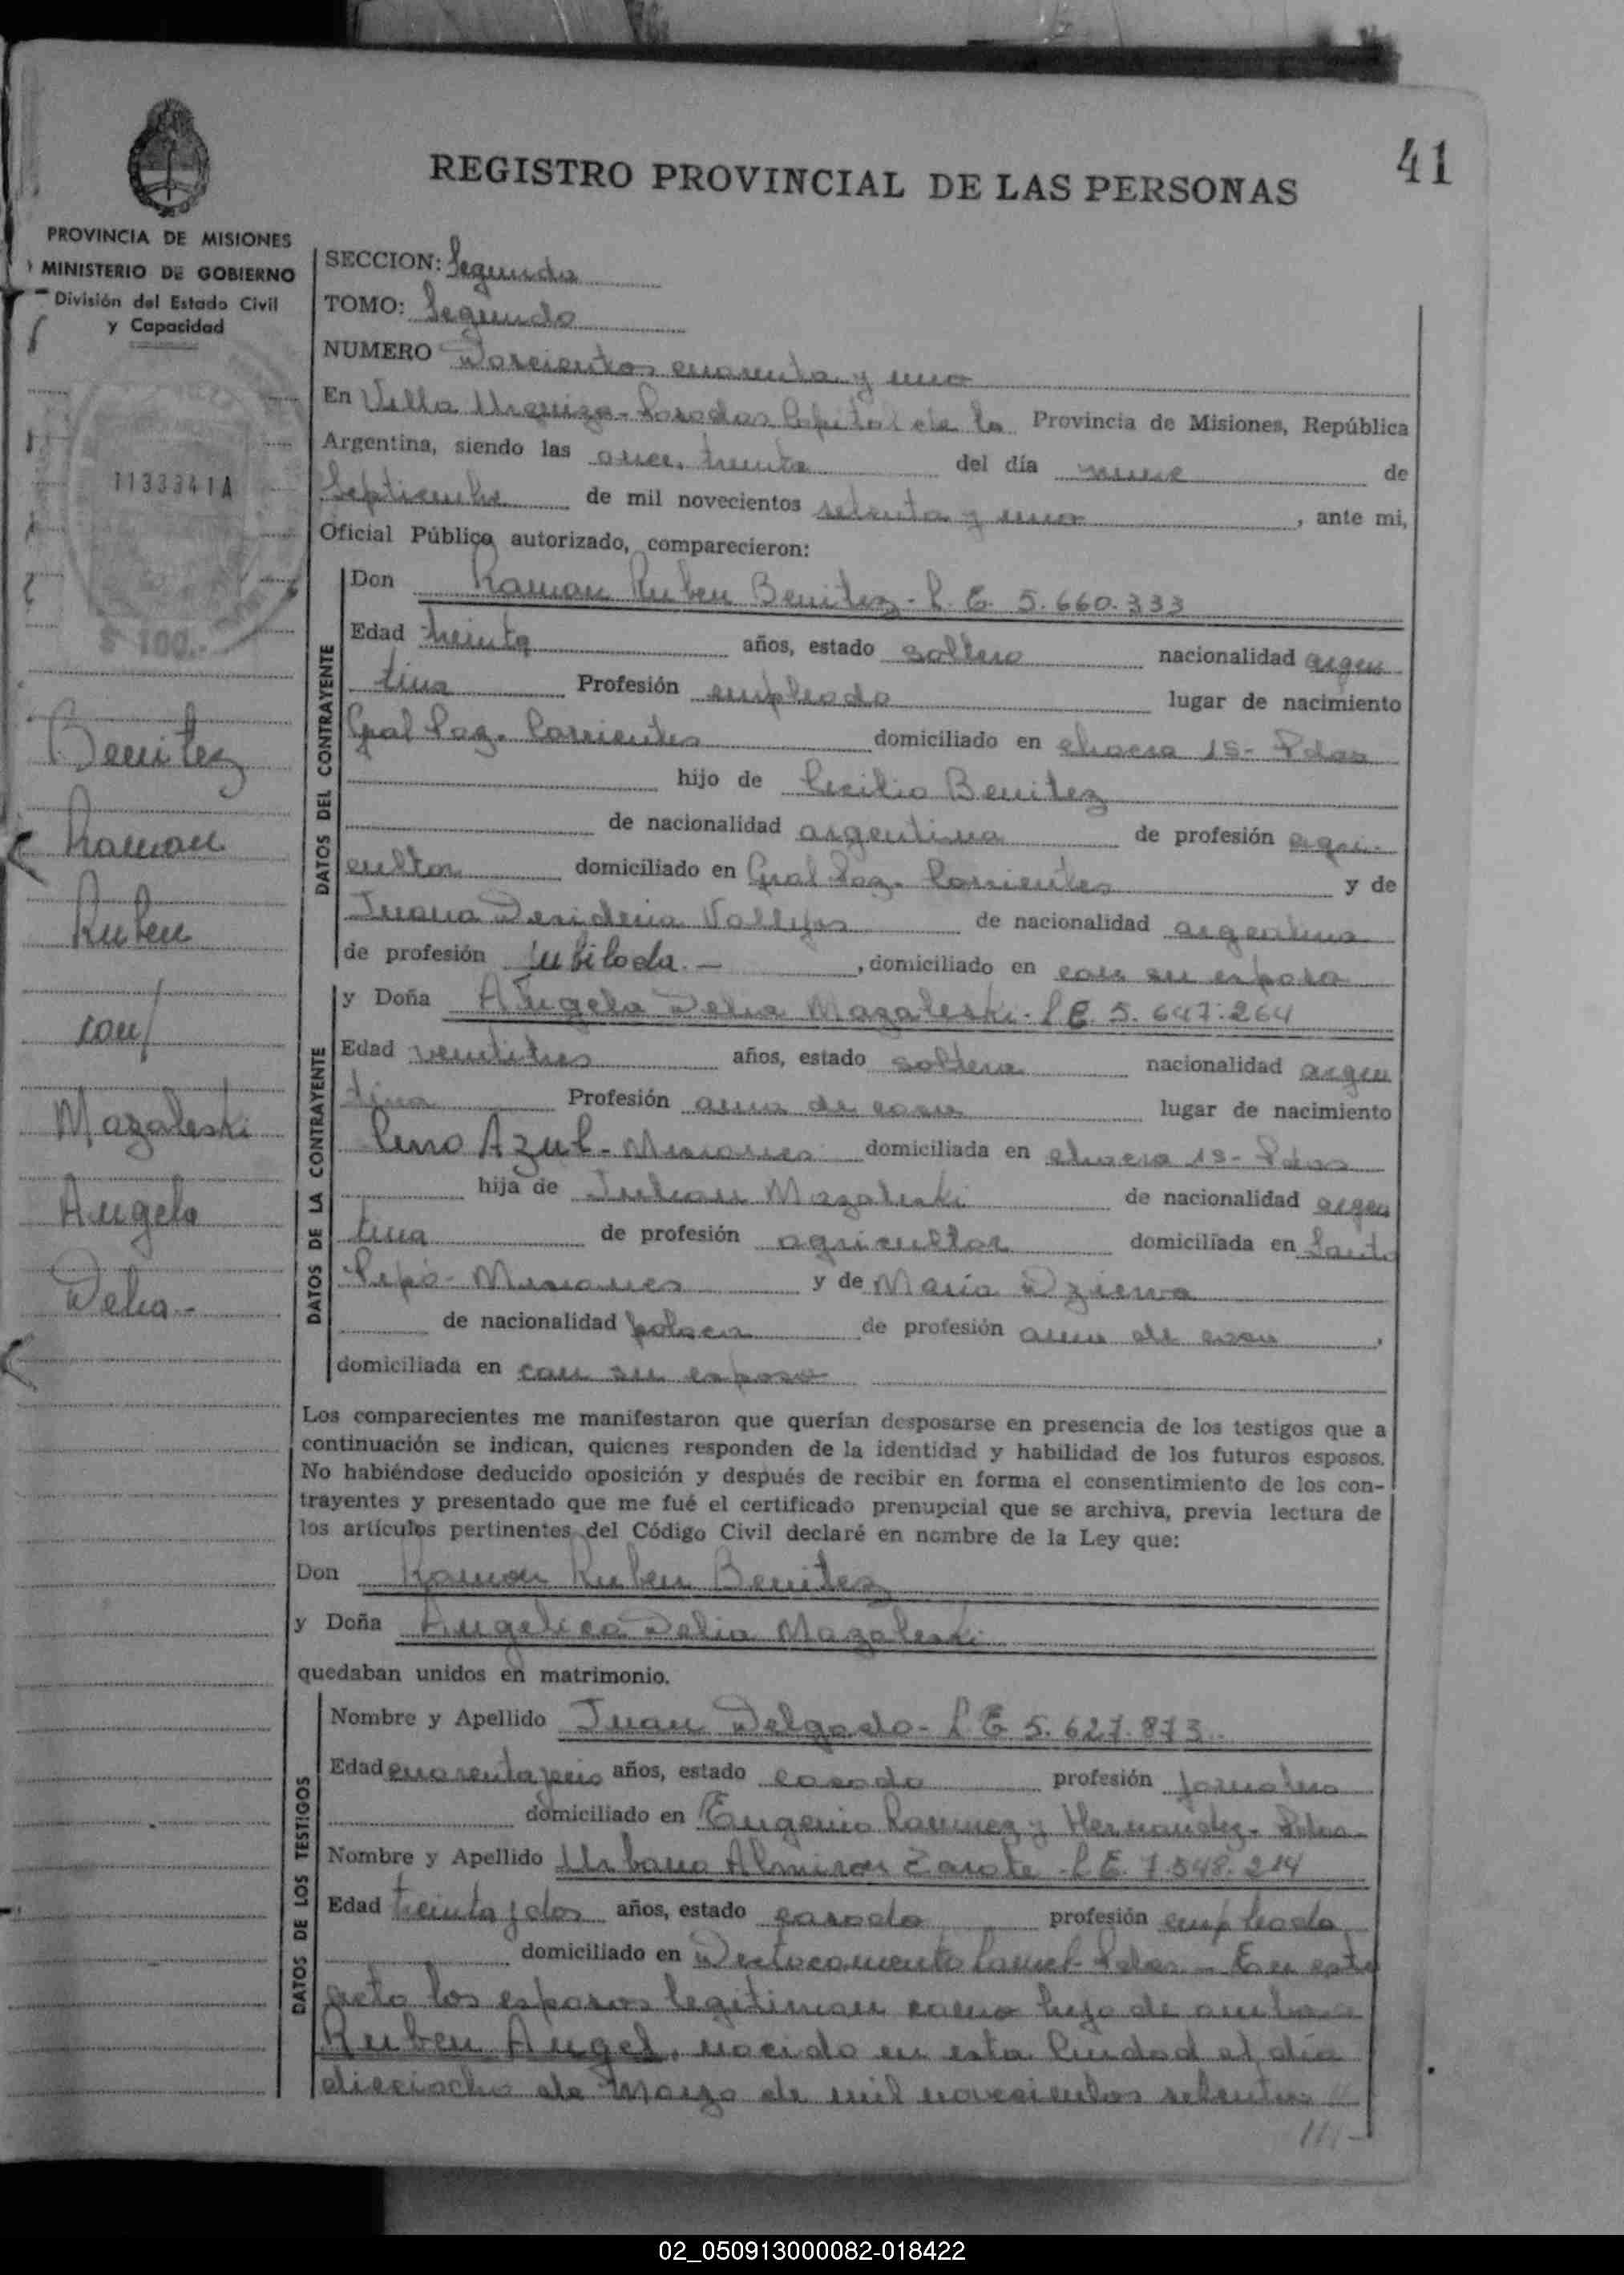 41
REGISTRO PROVINCIAL DE LAS PERSONAS
PROVINCIA DE MISIONES
MINISTERIO DE GOBIERNO
División del Estado Civil
y Capacidad
1133341A
$ 100.-
Benitez
Ramon
Ruben
con/
Mazaleski
Angela
Delia-
SECCION: Segunda
TOMO: Segundo
NUMERO Doscientos cuarenta y uno
En Villa Urquiza - Posadas Capital de la Provincia de Misiones, República
Argentina, siendo las once, treinta del día nueve de
Septiembre de mil novecientos setenta y uno, ante mi,
Oficial Público autorizado, comparecieron:
DATOS DEL CONTRAYENTE
Don Ramon Ruben Benitez - L. E. 5.660.333
Edad treinta años, estado soltero nacionalidad argen
tina Profesión empleado lugar de nacimiento
Gral Paz - Corrientes domiciliado en chacra 15 - Pdas
hijo de Cecilio Benitez
de nacionalidad argentina de profesión agri-
cultor domiciliado en Gral Paz - Corrientes y de
Juana Desideria Vallejos de nacionalidad argentina
de profesión Jubilada.-, domiciliado en con su esposo
DATOS DE LA CONTRAYENTE
y Doña Angela Delia Mazaleski - L E. 5.647.264
Edad ventitres años, estado soltera nacionalidad argen
tina Profesión ama de casa lugar de nacimiento
Cerro Azul - Misiones domiciliada en chacra 15 - Pdas
hija de Julian Mazaleski de nacionalidad argen
tina de profesión agricultor domiciliada en Santo
Pipó - Misiones y de Maria
de nacionalidad polaca de profesión ama de casa,
domiciliada en con su esposo
Los comparecientes me manifestaron que querían desposarse en presencia de los testigos que a
continuación se indican, quienes responden de la identidad y habilidad de los futuros esposos.
No habiéndose deducido oposición y después de recibir en forma el consentimiento de los con-
trayentes y presentado que me fué el certificado prenupcial que se archiva, previa lectura de
los artículos pertinentes del Código Civil declaré en nombre de la Ley que:
Don Ramon Ruben Benitez
y Doña Angelica Delia Mazaleski
quedaban unidos en matrimonio.
DATOS DE LOS TESTIGOS
Nombre y Apellido Juan Delgado - L E 5.627.873.
Edad cuarenta y seis años, estado casado profesión jornalero
domiciliado en Eugenio Ramirez y Hernandez - Pdas
Nombre y Apellido Urbano Almiron Zarate - L E. 7.548.214
Edad treinta y dos años, estado casado profesión empleado
domiciliado en Destacamento Pdas - En este
acto los esposos legitiman como hijo de ambos a
Ruben Angel, nacido en esta Ciudad el dia
dieciocho de Marzo de mil novecientos setenta
///-
02_050913000082-018422